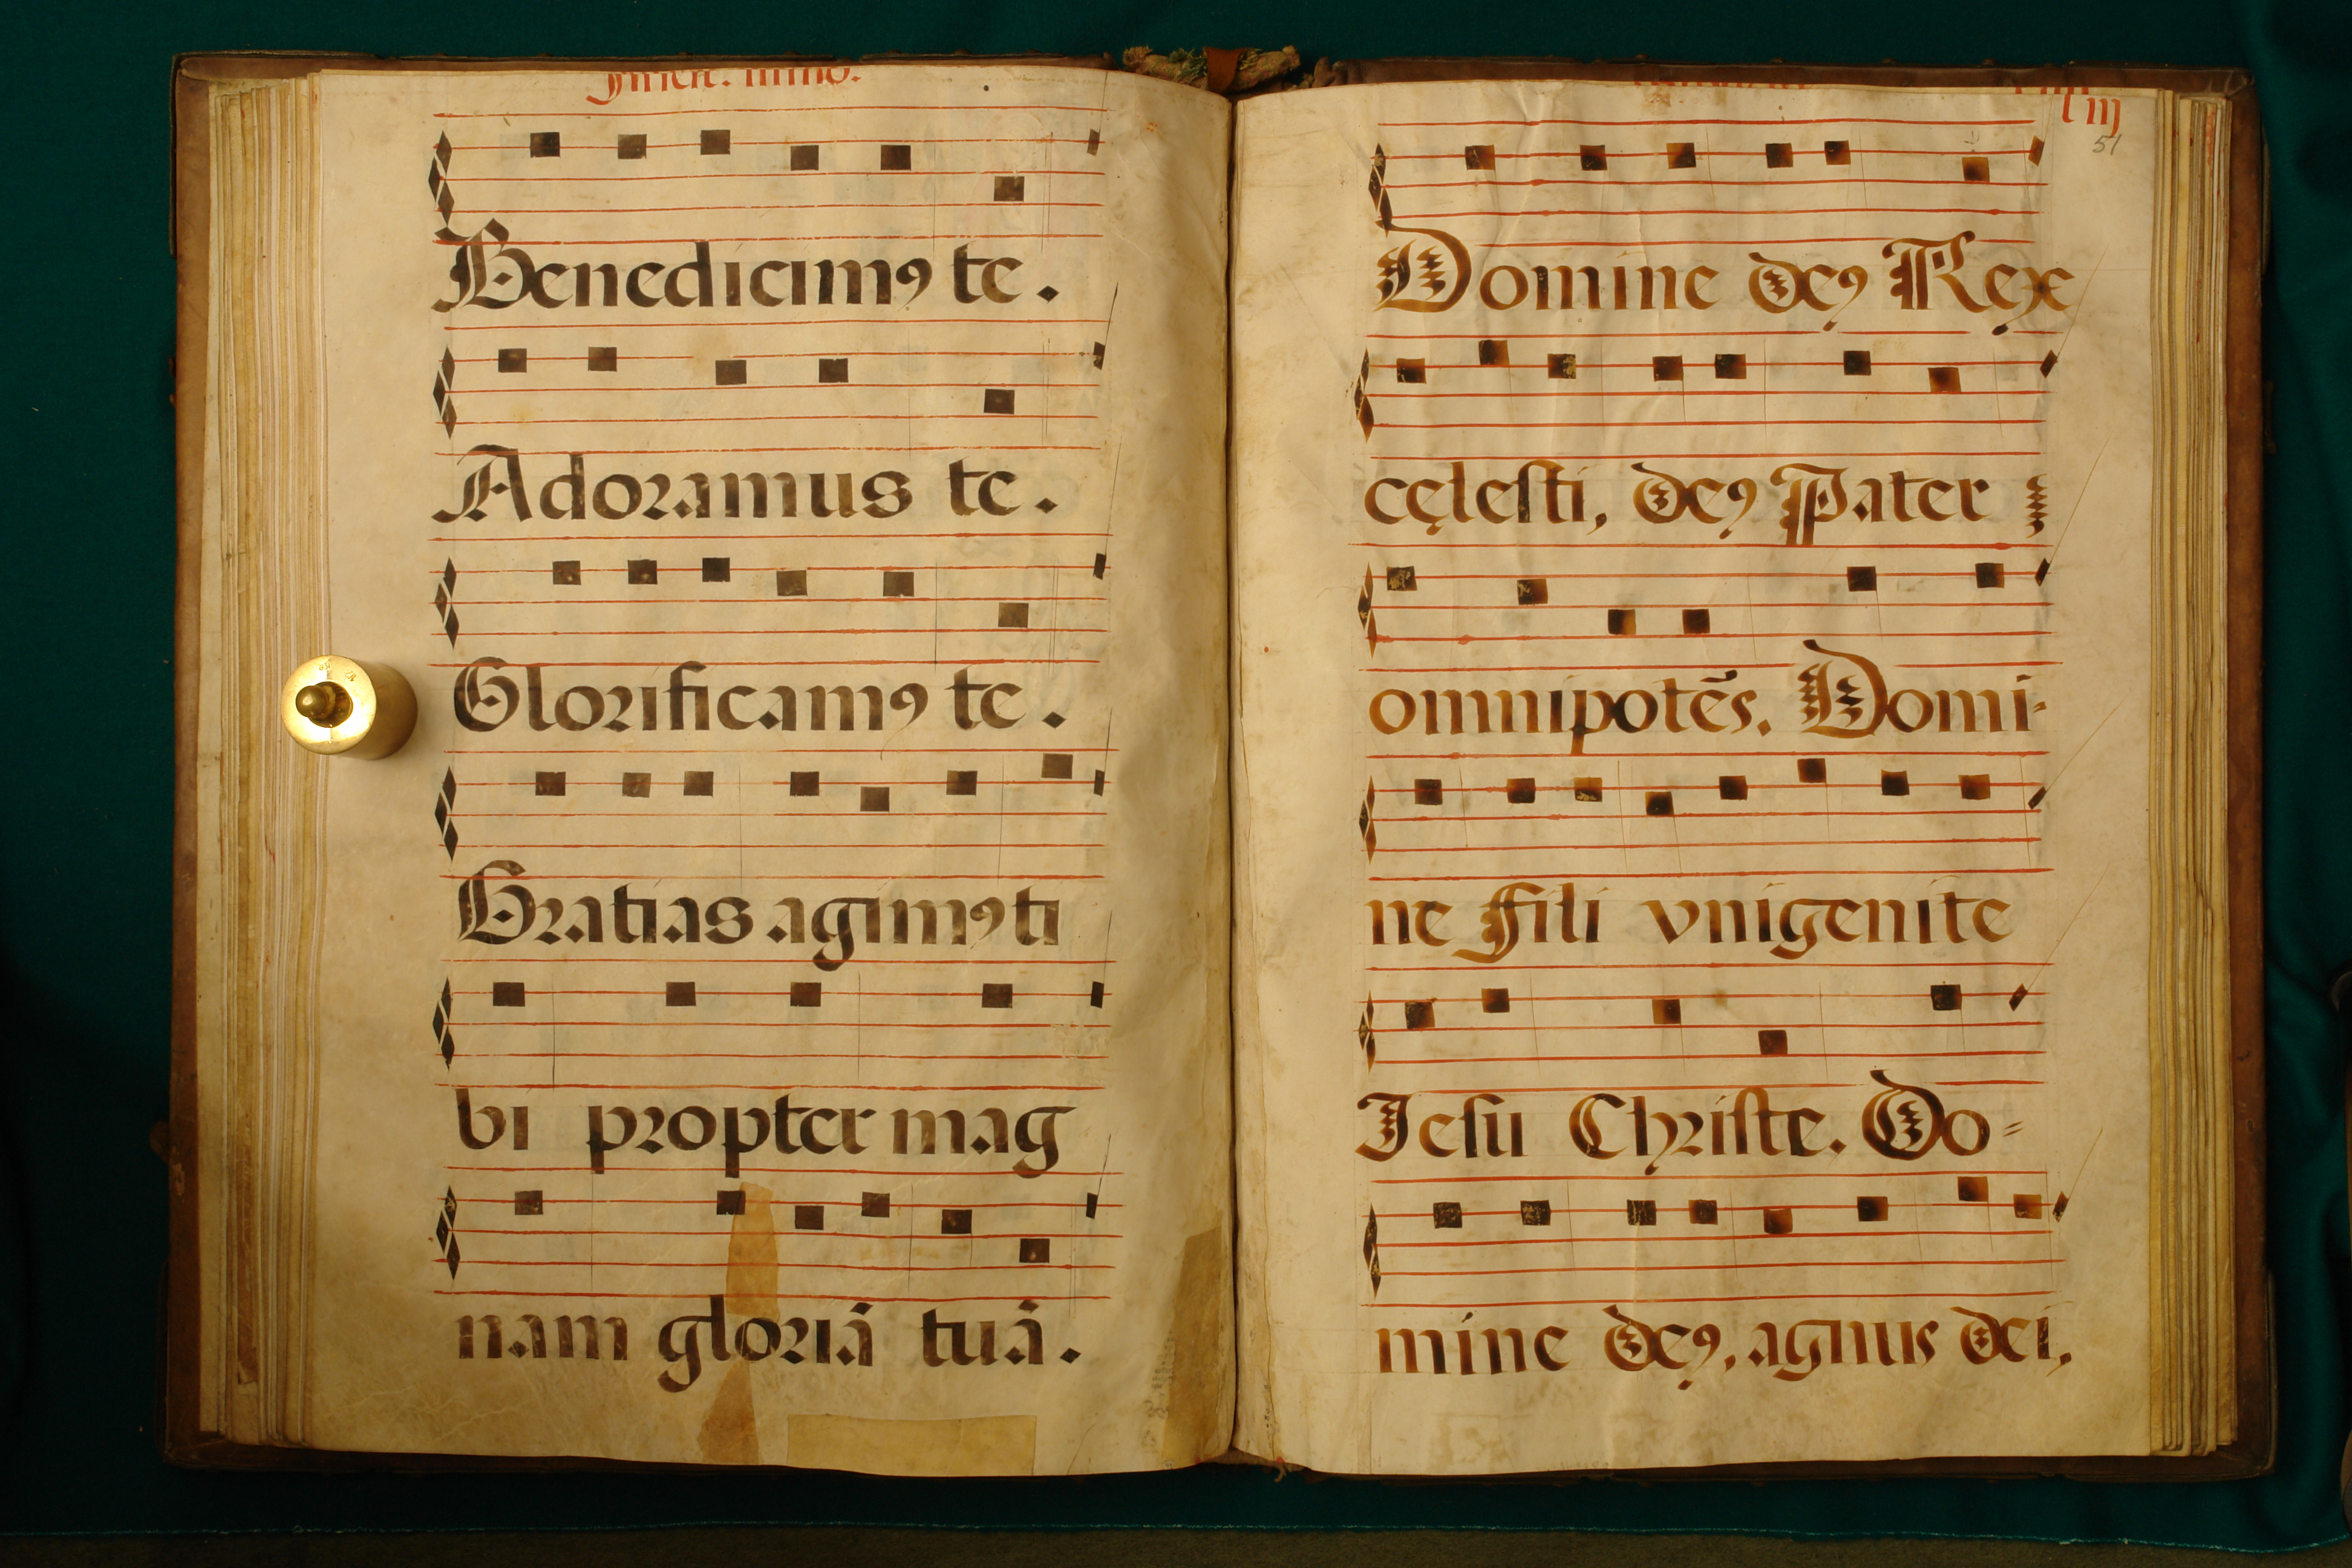 Benedicimꝯ te.
Adoramus te.
Glorificamꝯ te.
Gratias agimꝯ ti
bi propter mag
nam gloriā tuā.
51
Domine deꝯ Rex
cęlesti, deꝯ Pater
omnipotẽs. Domi-
ne Fili vnigenite
Iesu Christe. Do=
mine deꝯ, agnus dei,